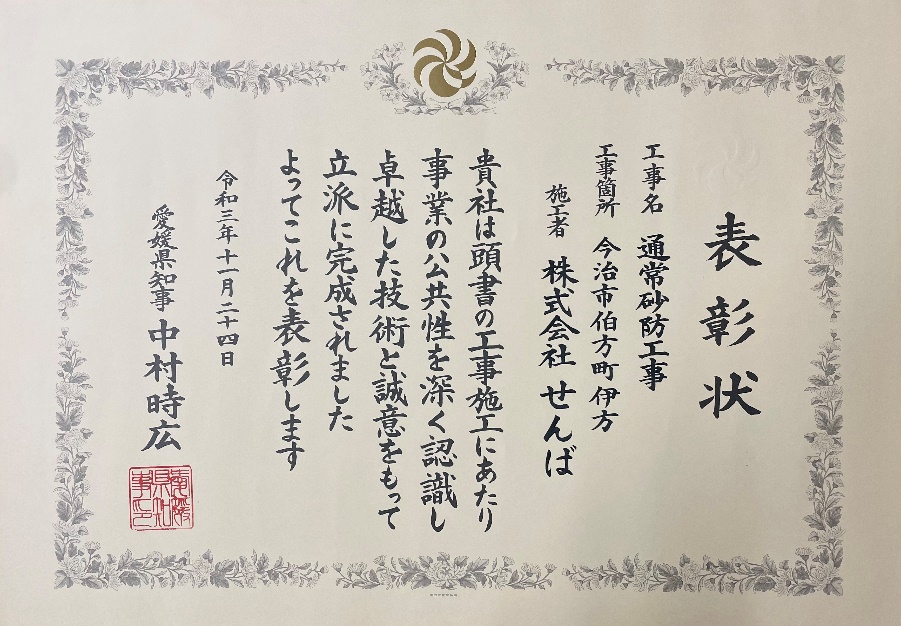 表彰状
工事名 通常砂防工事
工事箇所 今治市伯方町伊方
施工者 株式会社 せんば
貴社は頭書の工事施工にあたり
事業の公共性を深く認識し
卓越した技術と誠意をもって
立派に完成されました
よってこれを表彰します
令和三年十一月二十四日
愛媛県知事 中村時広
愛媛県知事印